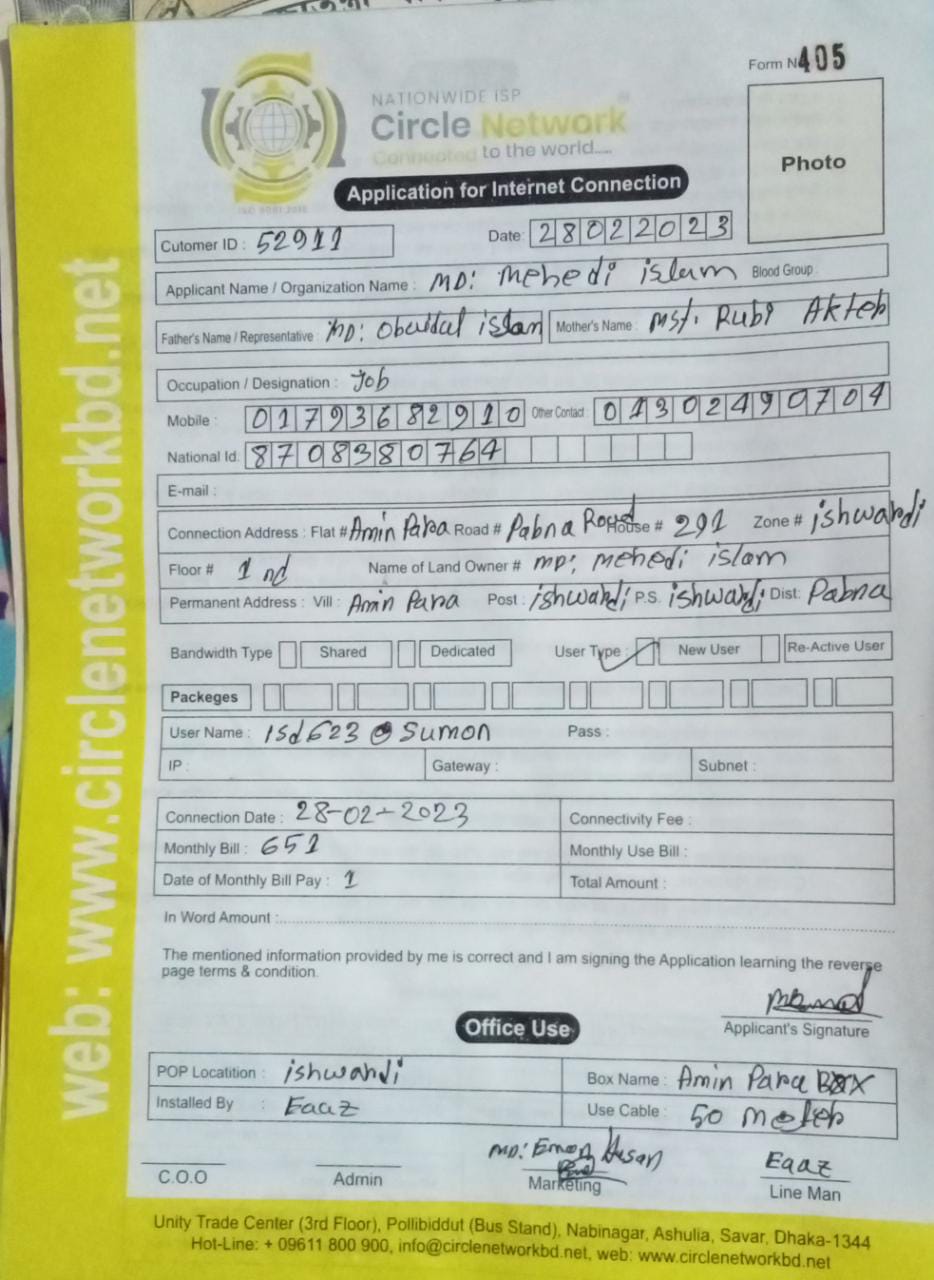 Form N 405
NATIONWIDE ISP
Circle Network
Connected to the world....
ISO 9001:2015
Photo
Application for Internet Connection
Cutomer ID : 52911
Date: 28022023
Applicant Name / Organization Name : MD: Mehedi islam Blood Group :
Father's Name / Representative : MD: Obaidul islam Mother's Name : Mst. Rubi Akter
Occupation / Designation : Job
Mobile : 01793682910 Other Contact : 01302490704
National Id: 8708380764
E-mail :
Connection Address : Flat # Amin Para Road # Pabna Road House # 291 Zone # ishwardi
Floor # 1 nd Name of Land Owner # MD: Mehedi islam
Permanent Address : Vill : Amin Para Post : ishwardi P.S. ishwardi Dist: Pabna
Bandwidth Type Shared Dedicated User Type : New User Re-Active User
Packeges
User Name : isd623@sumon Pass :
IP : Gateway : Subnet :
Connection Date : 28-02-2023 Connectivity Fee :
Monthly Bill : 651 Monthly Use Bill :
Date of Monthly Bill Pay : 1 Total Amount :
In Word Amount :
The mentioned information provided by me is correct and I am signing the Application learning the reverse
page terms & condition.
Applicant's Signature
Office Use
POP Locatition : ishwardi Box Name : Amin Para BOX
Installed By : Eaaz Use Cable : 50 Meter
MD: Emon Hasan Eaaz
C.O.O Admin Marketing Line Man
Unity Trade Center (3rd Floor), Pollibiddut (Bus Stand), Nabinagar, Ashulia, Savar, Dhaka-1344
Hot-Line: + 09611 800 900, info@circlenetworkbd.net, web: www.circlenetworkbd.net
web: www.circlenetworkbd.net